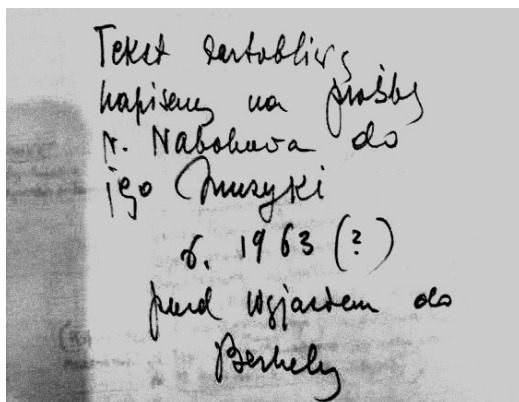 Tekst żartobliwy
napisany na prośbę
N. Nabokova do
jego Muzyki
r. 1963 (?)
przed wyjazdem do
Berkeley